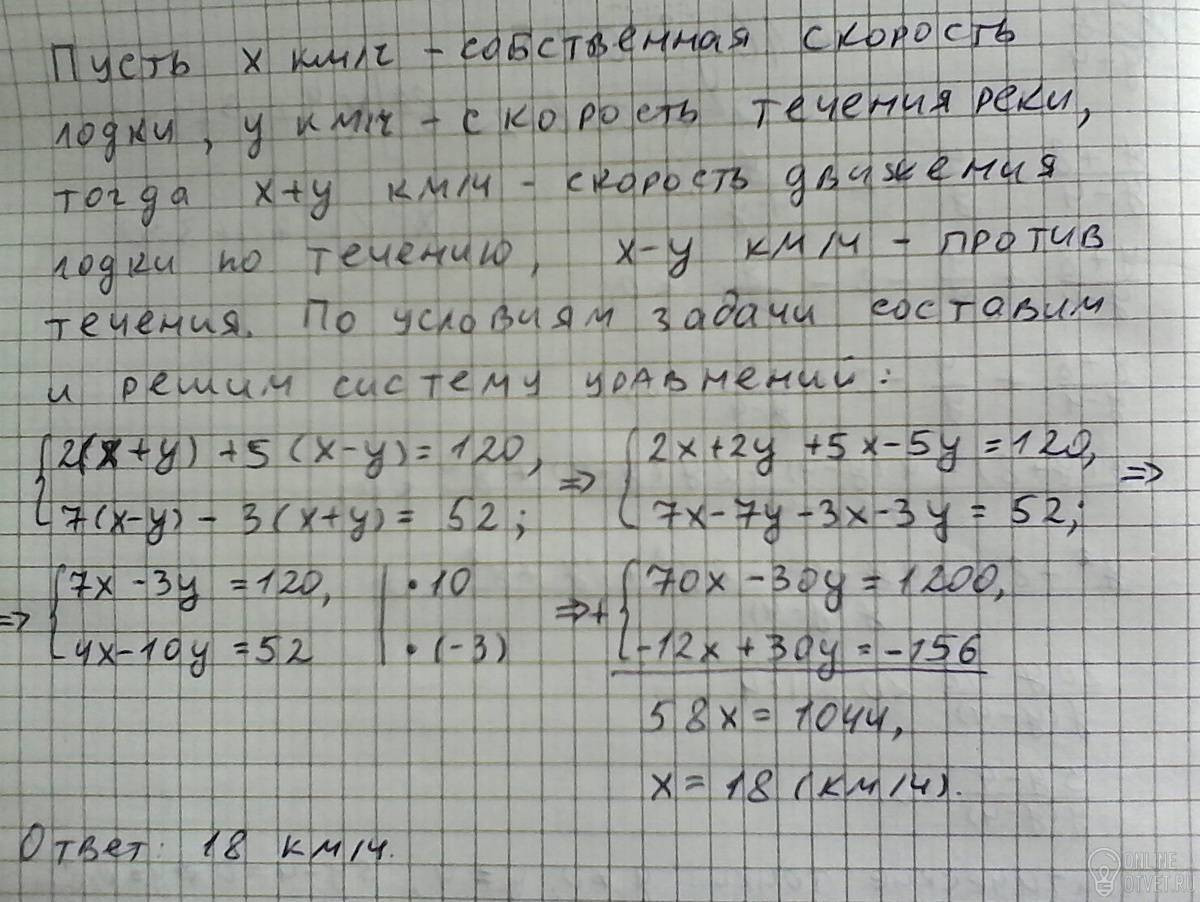 Пусть x км/ч - собственная скорость
лодки, y км/ч - скорость течения реки,
тогда x+y км/ч - скорость движения
лодки по течению, x-y км/ч - против
течения. По условиям задачи составим
и решим систему уравнений:
{2(x+y)+5(x-y)=120, => {2x+2y+5x-5y=120, =>
7(x-y)-3(x+y)=52; 7x-7y-3x-3y=52;
=> {7x-3y=120, | •10 => + {70x-30y=1200,
4x-10y=52 | •(-3) -12x+30y=-156
58x=1044,
x=18 (км/ч).
Ответ: 18 км/ч.
ONLINE
OTVET.RU